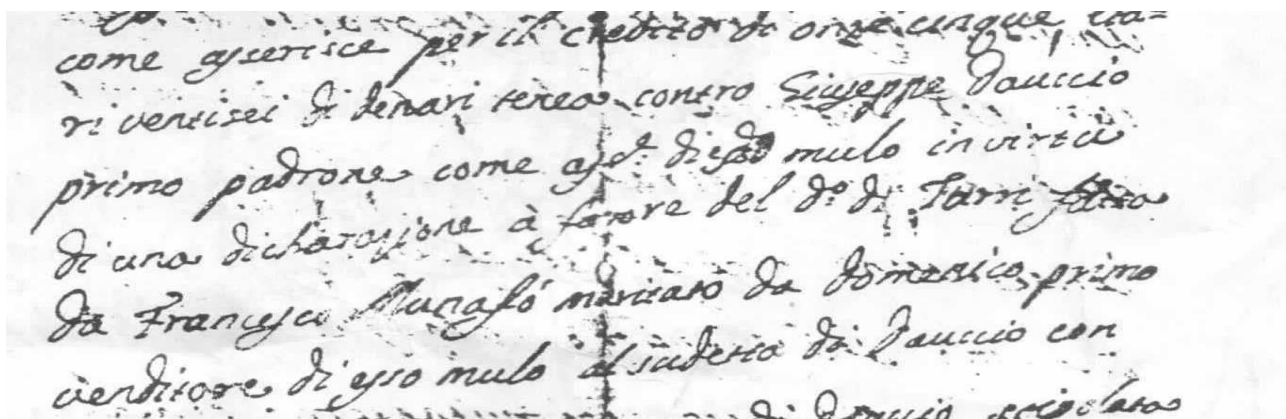 come asserisce per il credito di onze cinque, ta=
ri ventisei di denari tenea contro Giuseppe Dauccio
primo padrone come ass.e di esso mulo in virtù
di una dicharazione à favore del d.o di Tarri fatta
da Francesco Munafò da Domenico primo
venditore di esso mulo al sudetto di Dauccio con
stipolata